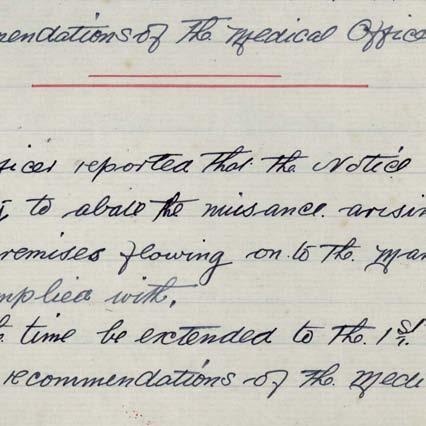 mendations of the Medical Office
fficer reported that the Notice
to abate the nuisance arisin
remises flowing on to the Mar
mplied with.
time be extended to the 1st.
recommendations of the Medi